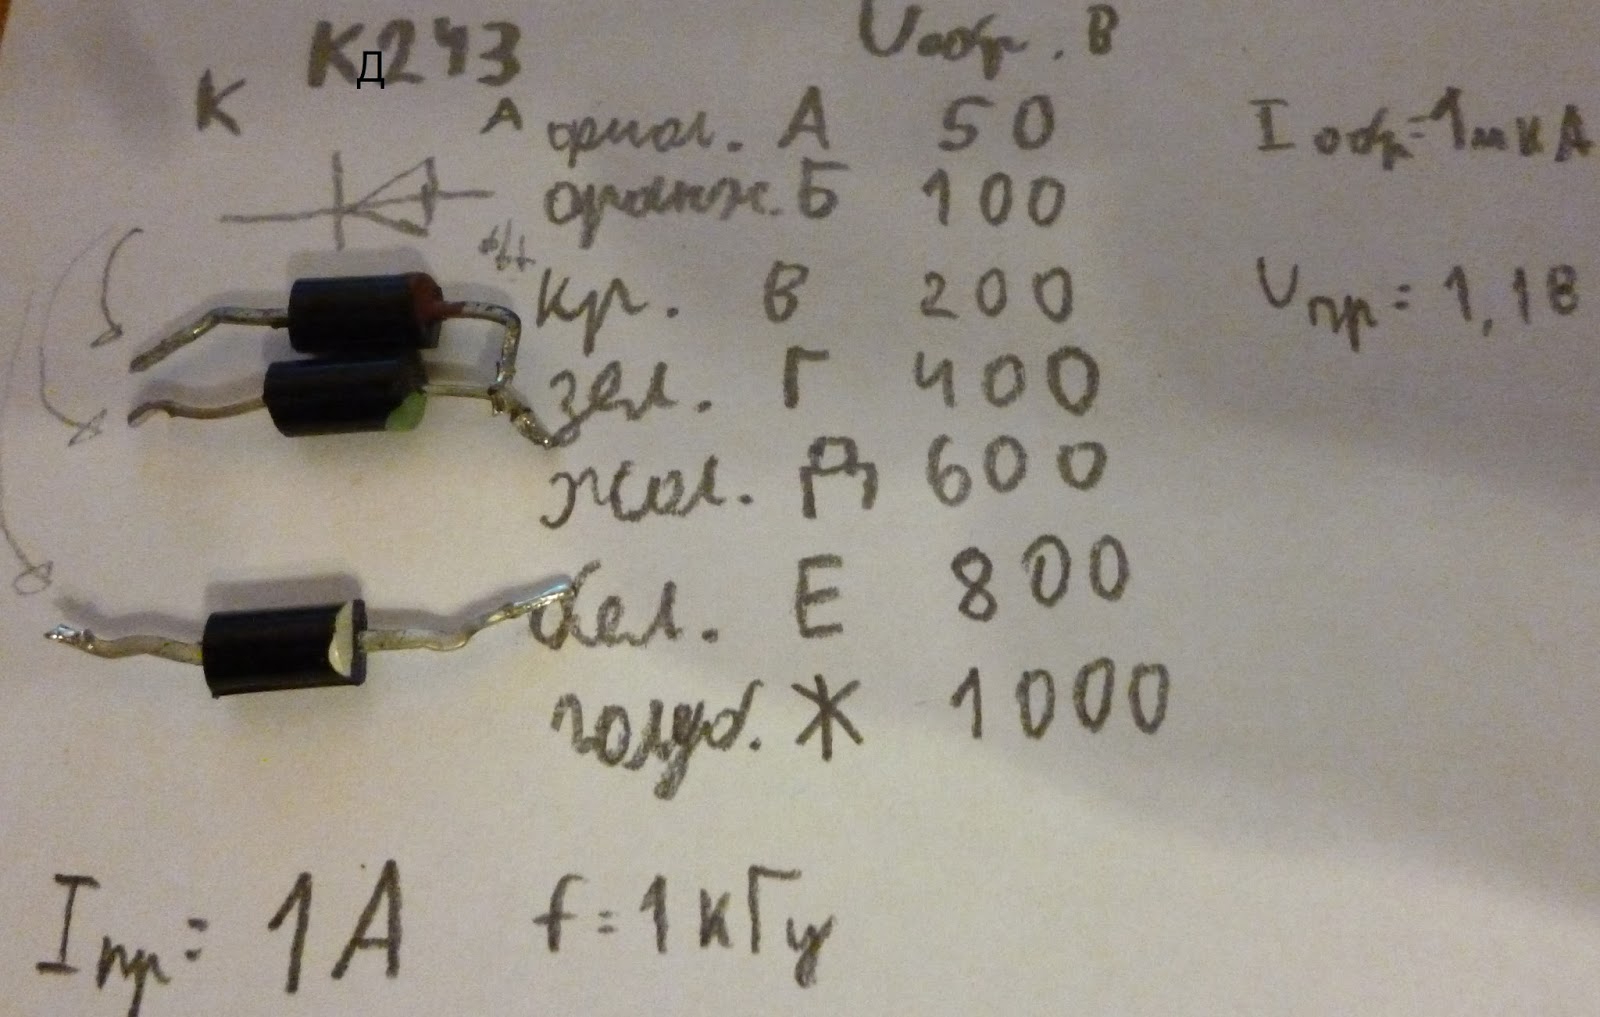 КД243 Uобр. В
К А фиол. А 50 Iобр=1мкА
оранж. Б 100
кр. В 200 Uпр=1,1В
зел. Г 400
жол. Д 600
бел. Е 800
голуб. Ж 1000
Iпр= 1А f=1кГц